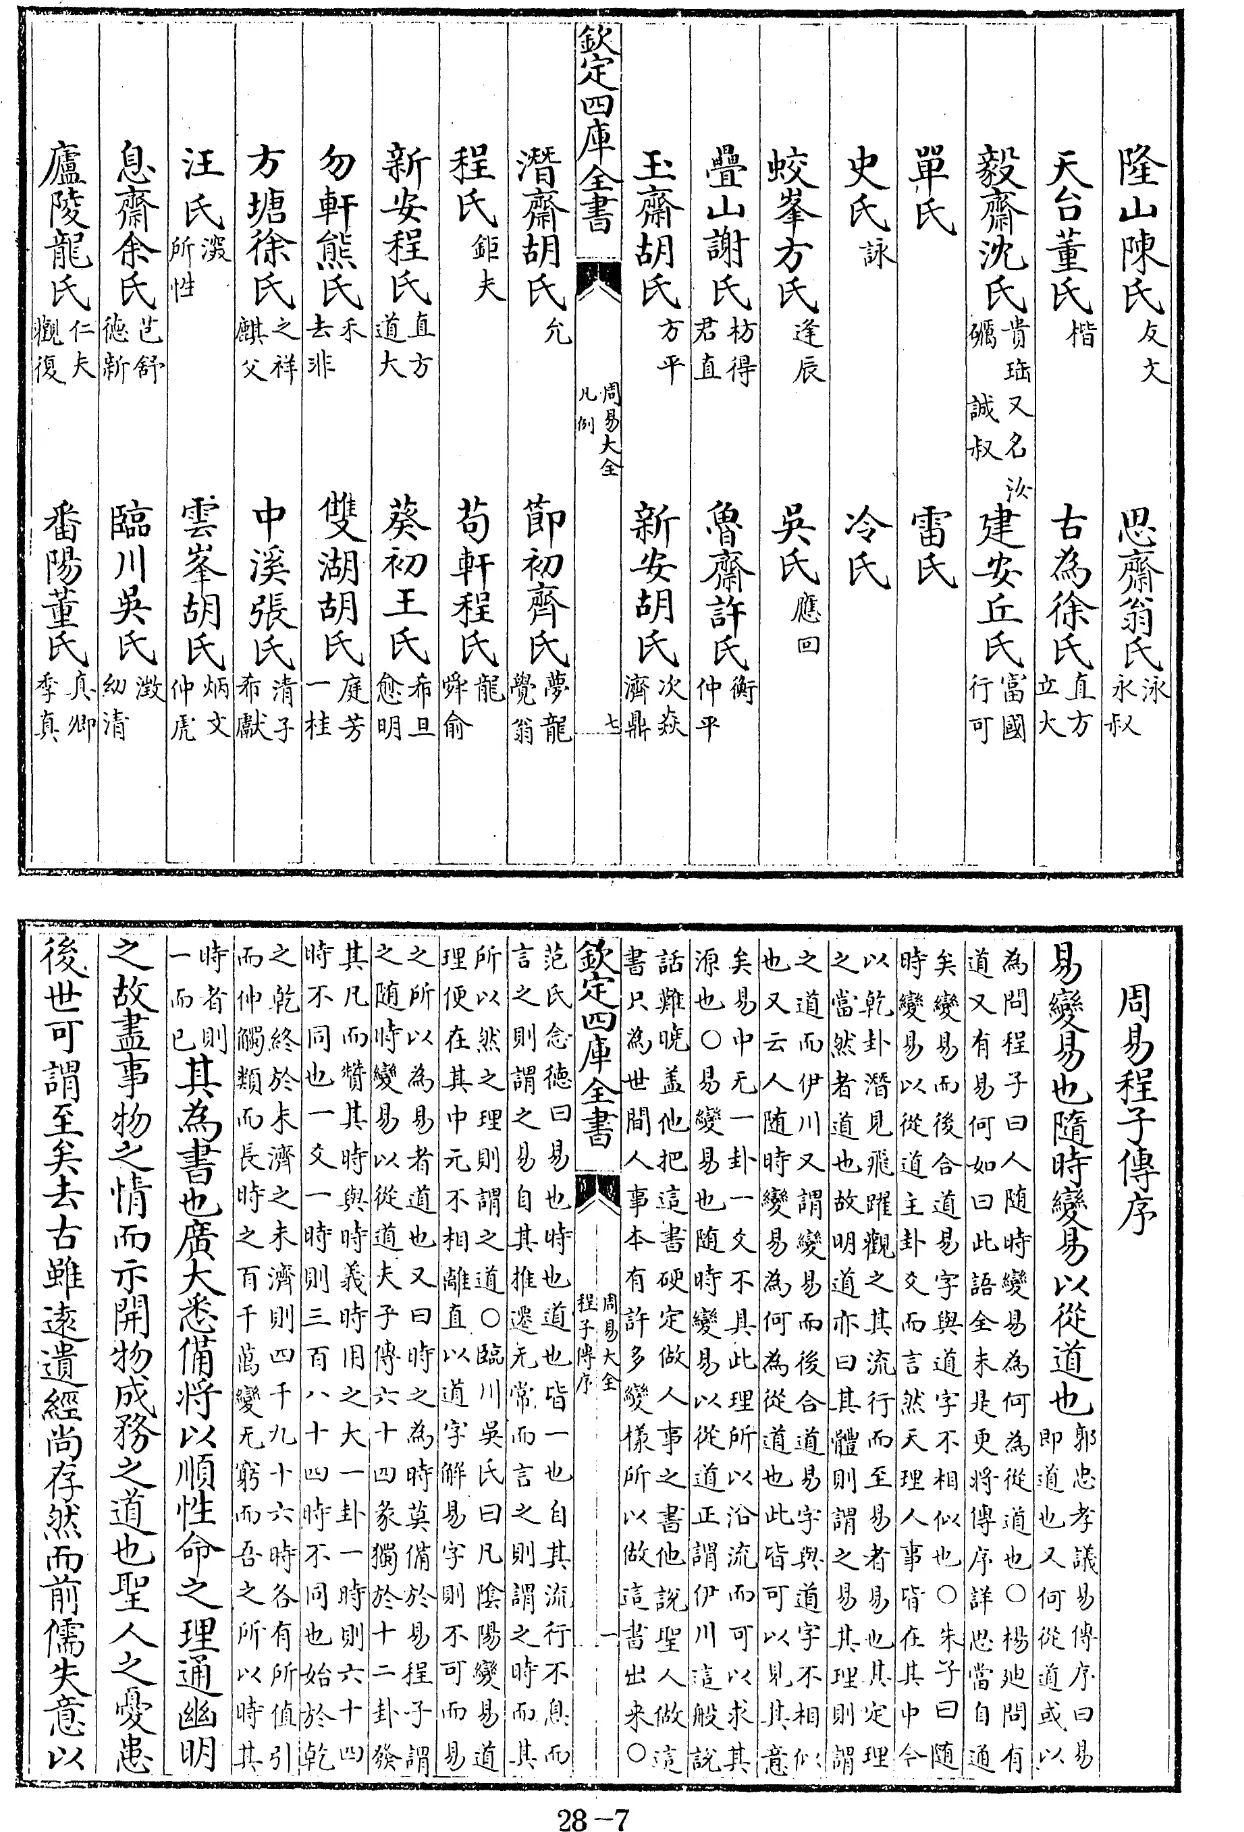 隆山陳氏友文 思齋翁氏泳永叔
天台董氏楷 古為徐氏直方立大
毅齋沈氏貴珤又名汝礪誠叔 建安丘氏富國行可
單氏 雷氏
史氏詠 冷氏
蛟峯方氏逢辰 吳氏應回
疊山謝氏枋得君直 魯齋許氏衡仲平
玉齋胡氏方平 新安胡氏次焱濟鼎
欽定四庫全書 周易大全凡例 七
潛齋胡氏允 節初齊氏夢龍覺翁
程氏鉅夫 苟軒程氏龍舜俞
新安程氏直方道大 葵初王氏希旦愈明
勿軒熊氏禾去非 雙湖胡氏庭芳一桂
方塘徐氏之祥麒父 中溪張氏清子希獻
汪氏深所性 雲峯胡氏炳文仲虎
息齋余氏芑舒德新 臨川吳氏澂幼清
廬陵龍氏仁夫觀復 番陽董氏真卿季真
周易程子傳序
易變易也隨時變易以從道也郭忠孝議易傳序曰易即道也又何從道或以
為問程子曰人随時變易為何為從道也○楊廸問有
道又有易何如曰此語全未是更將傳序詳思當自通
矣變易而後合道易字與道字不相似也○朱子曰随
時變易以從道主卦爻而言然天理人事皆在其中今
以乾卦潛見飛躍觀之其流行而至易者易也其定理
之當然者道也故明道亦曰其體則謂之易其理則謂
之道而伊川又謂變易而後合道易字與道字不相似
也又云人随時變易為何為從道也此皆可以見其意
矣易中无一卦一爻不具此理所以沿流而可以求其
源也○易變易也随時變易以從道正謂伊川這般說
話難曉盖他把這書硬定做人事之書他說聖人做這
書只為世間人事本有許多變樣所以做這書出來○
欽定四庫全書 周易大全程子傳序 一
范氏念德曰易也時也道也皆一也自其流行不息而
言之則謂之易自其推遷无常而言之則謂之時而其
所以然之理則謂之道○臨川吳氏曰凡陰陽變易道
理便在其中元不相離直以道字解易字則不可而易
之所以為易者道也又曰時之為時莫備於易程子謂
之随時變易以從道夫子傳六十四彖獨於十二卦發
其凡而贊其時與時義時用之大一卦一時則六十四
時不同也一爻一時則三百八十四時不同也始於乾
之乾終於未濟之未濟則四千九十六時各有所值引
而伸觸類而長時之百千萬變无窮而吾之所以時其
時者則一而已其為書也廣大悉備將以順性命之理通幽明
之故盡事物之情而示開物成務之道也聖人之憂患
後世可謂至矣去古雖遠遺經尚存然而前儒失意以
28-7